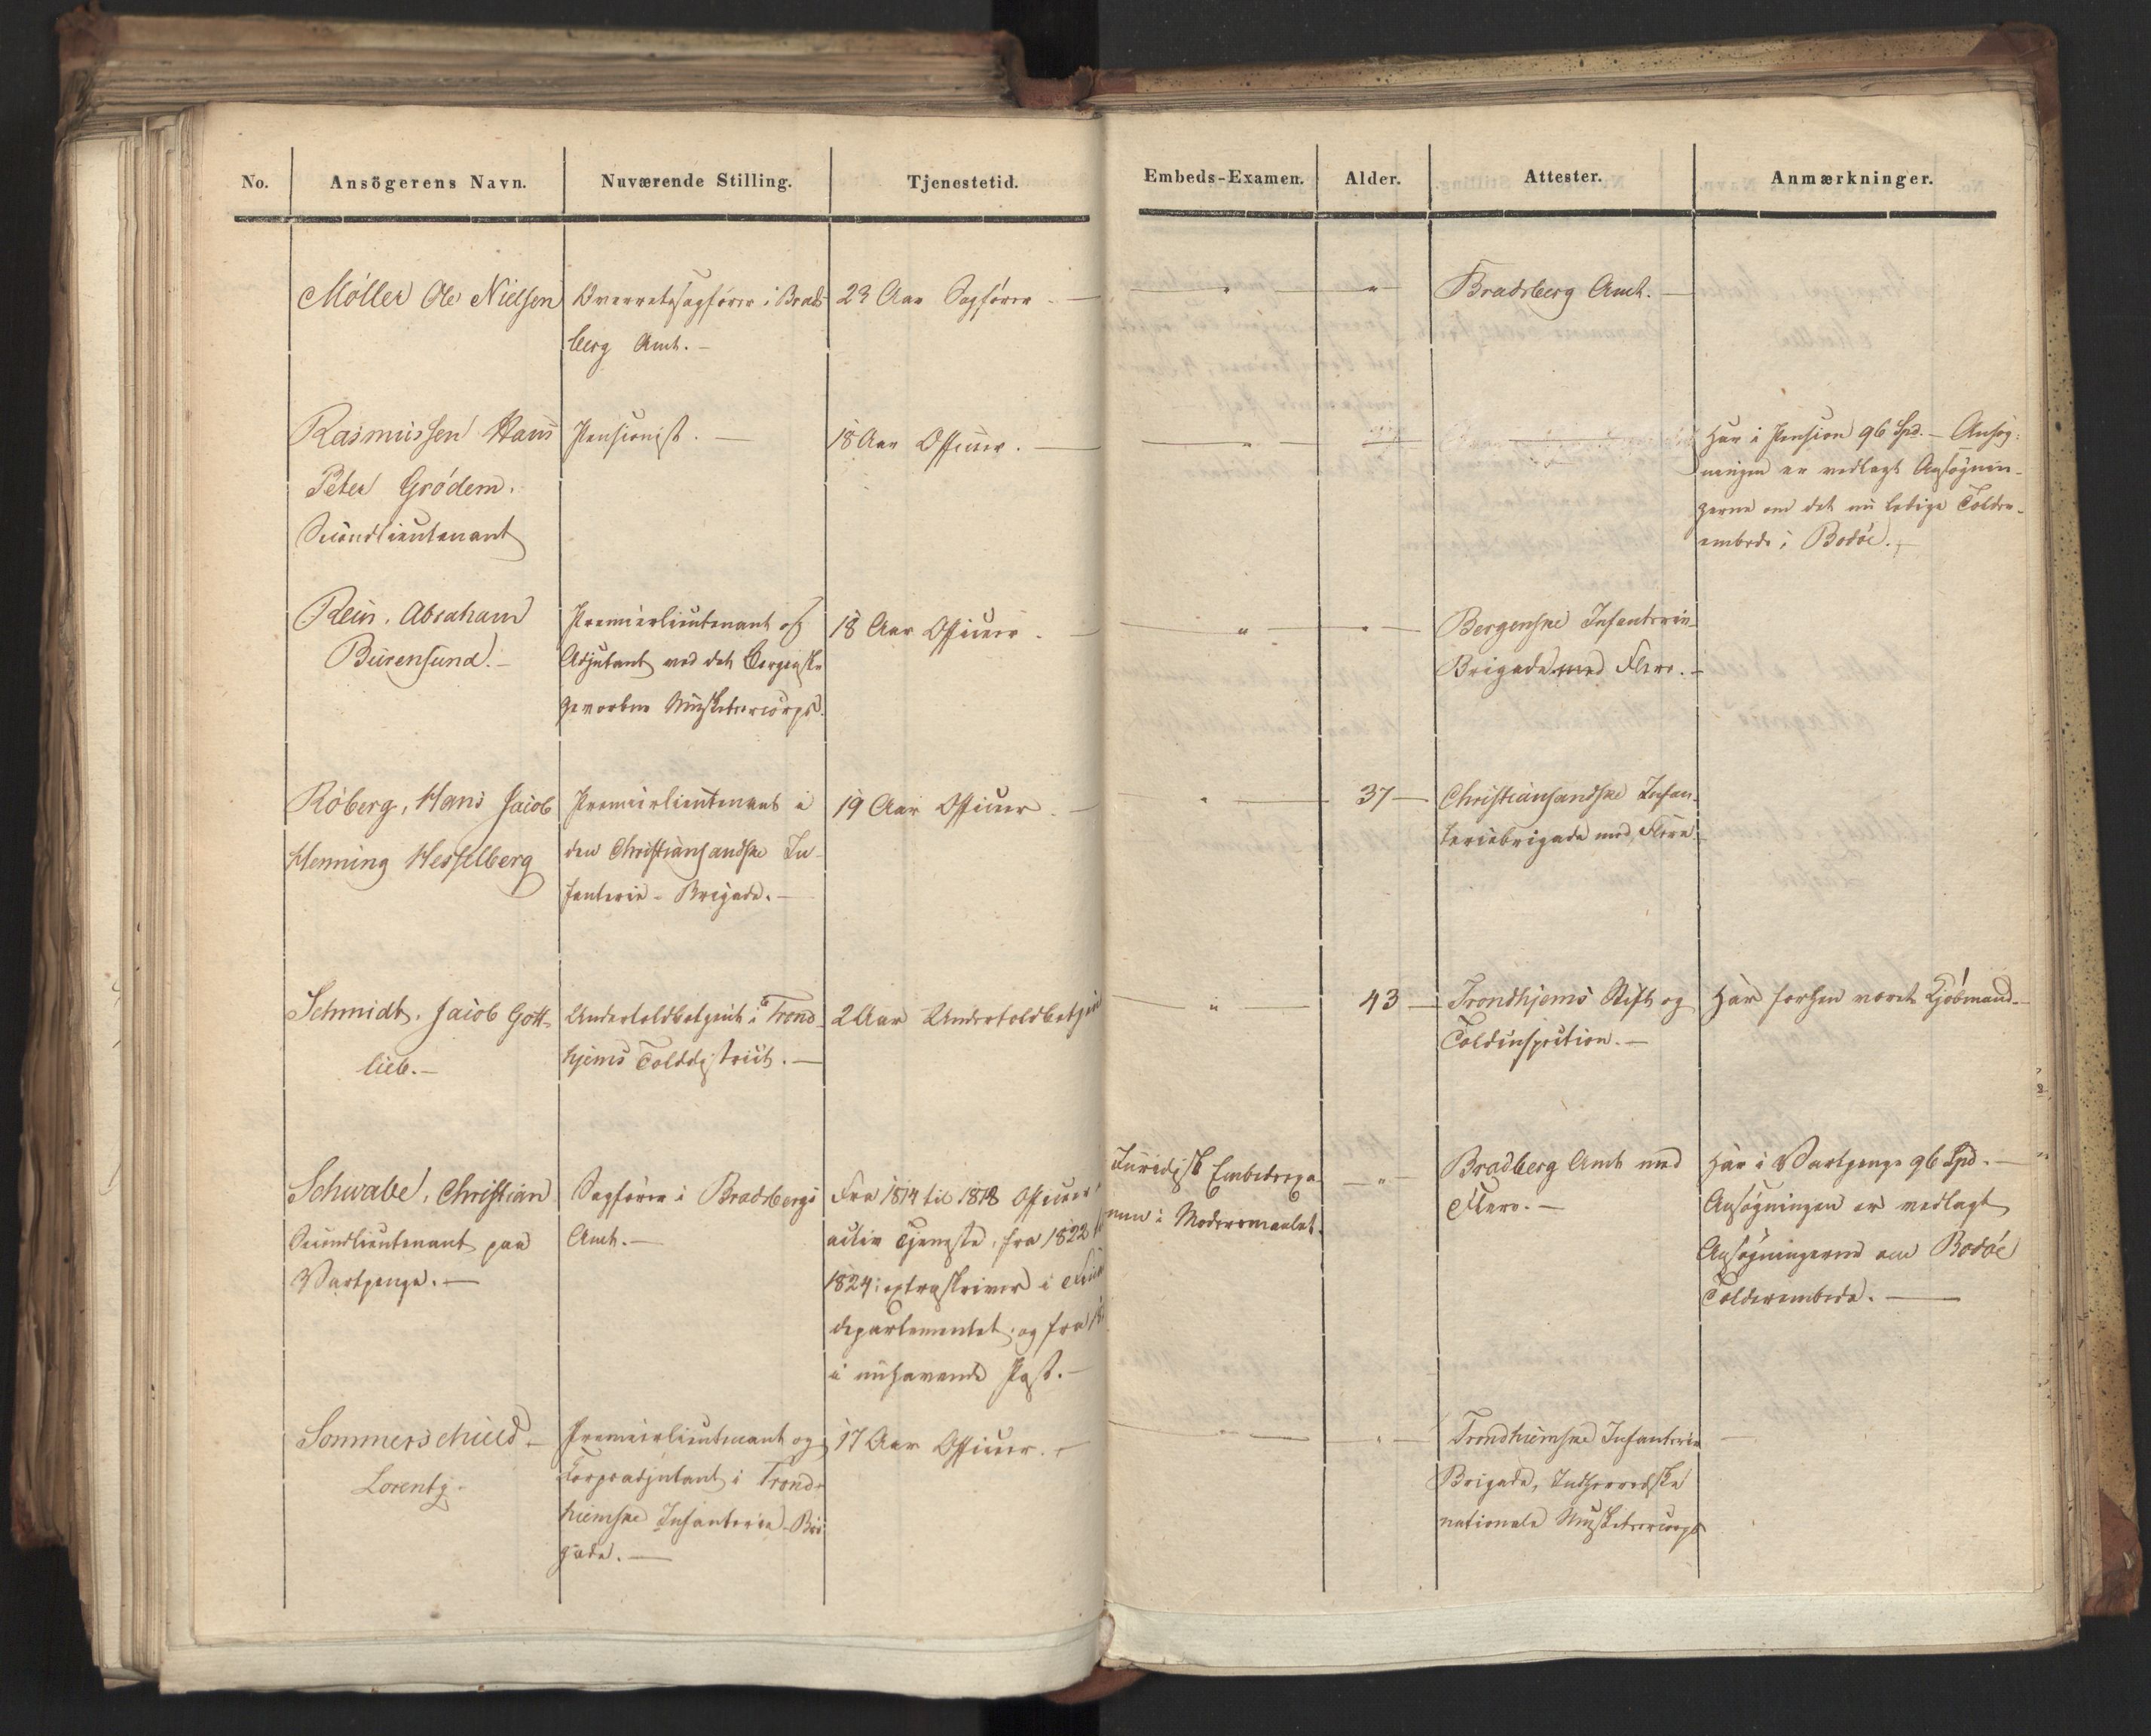 No.
Ansögerens Navn.
Nuværende Stilling.
Tjenestetid.
Embeds-Examen.
Alder.
Attester.
Anmærkninger.
Möller Ole Nielsen
Overretssagfører i Brads-
berg Amt. —
23 Aar Sagfører. —
— " —
"
Bradsberg Amt. —
Rasmussen Hans
Peter Grödem.
Secondlieutenant
Pensionist. —
18 Aar Officier. —
— " —
Har i Pension 96 Spd. — Ansøg-
ningen er vedlagt Ansøgnin-
gerne om det nu ledige Tolder-
embede i Bodöe. —
Rein, Abraham
Bürensund. —
Premierlieutenant og
Adjutant ved det Bergenske
gevorbne Musketeercorps.
18 Aar Officier. —
— " —
— " —
Bergenske Infanterie-
Brigade med Flere. —
Röberg, Hans Jacob
Henning Hesselberg
Premierlieutenant i
den Christiansandske In-
fanterie-Brigade. —
19 Aar Officier. —
— " —
37 —
Christiansandske Infan-
teriebrigade med Flere.
Schmidt, Jacob Gott-
lieb. —
Undertoldbetjent i Trond-
hjems Tolddistrict. —
2 Aar Undertoldbetjent
— " —
43 —
Trondhjems Stift og
Toldinspection. —
Har forhen været Kjöbmand. —
Schwabe, Christian
Secondlieutenant paa
Vartpenge. —
Sagfører i Bradsbergs
Amt. —
Fra 1814 til 1818 Officier i
activ Tjeneste, fra 1822 til
1824 extraskriver i
departementet, og fra
i nuhavende Post. —
Juridisk Embedsexa-
men i Modersmaalet.
— " —
Bradberg Amt med
Flere. —
Har i Vartpenge 96 Spd. —
Ansøgningen er vedlagt
Ansøgningerne om Bodöe
Tolderembede. —
Sommerschield —
Lorentz.
Premierlieutenant og
Corpsadjutant i Trond-
hiemske Infanterie-Bri-
gade. —
17 Aar Officier. —
— " —
— " —
Trondhiemske Infanterie
Brigade, Indherredske
nationale Musketeercorps